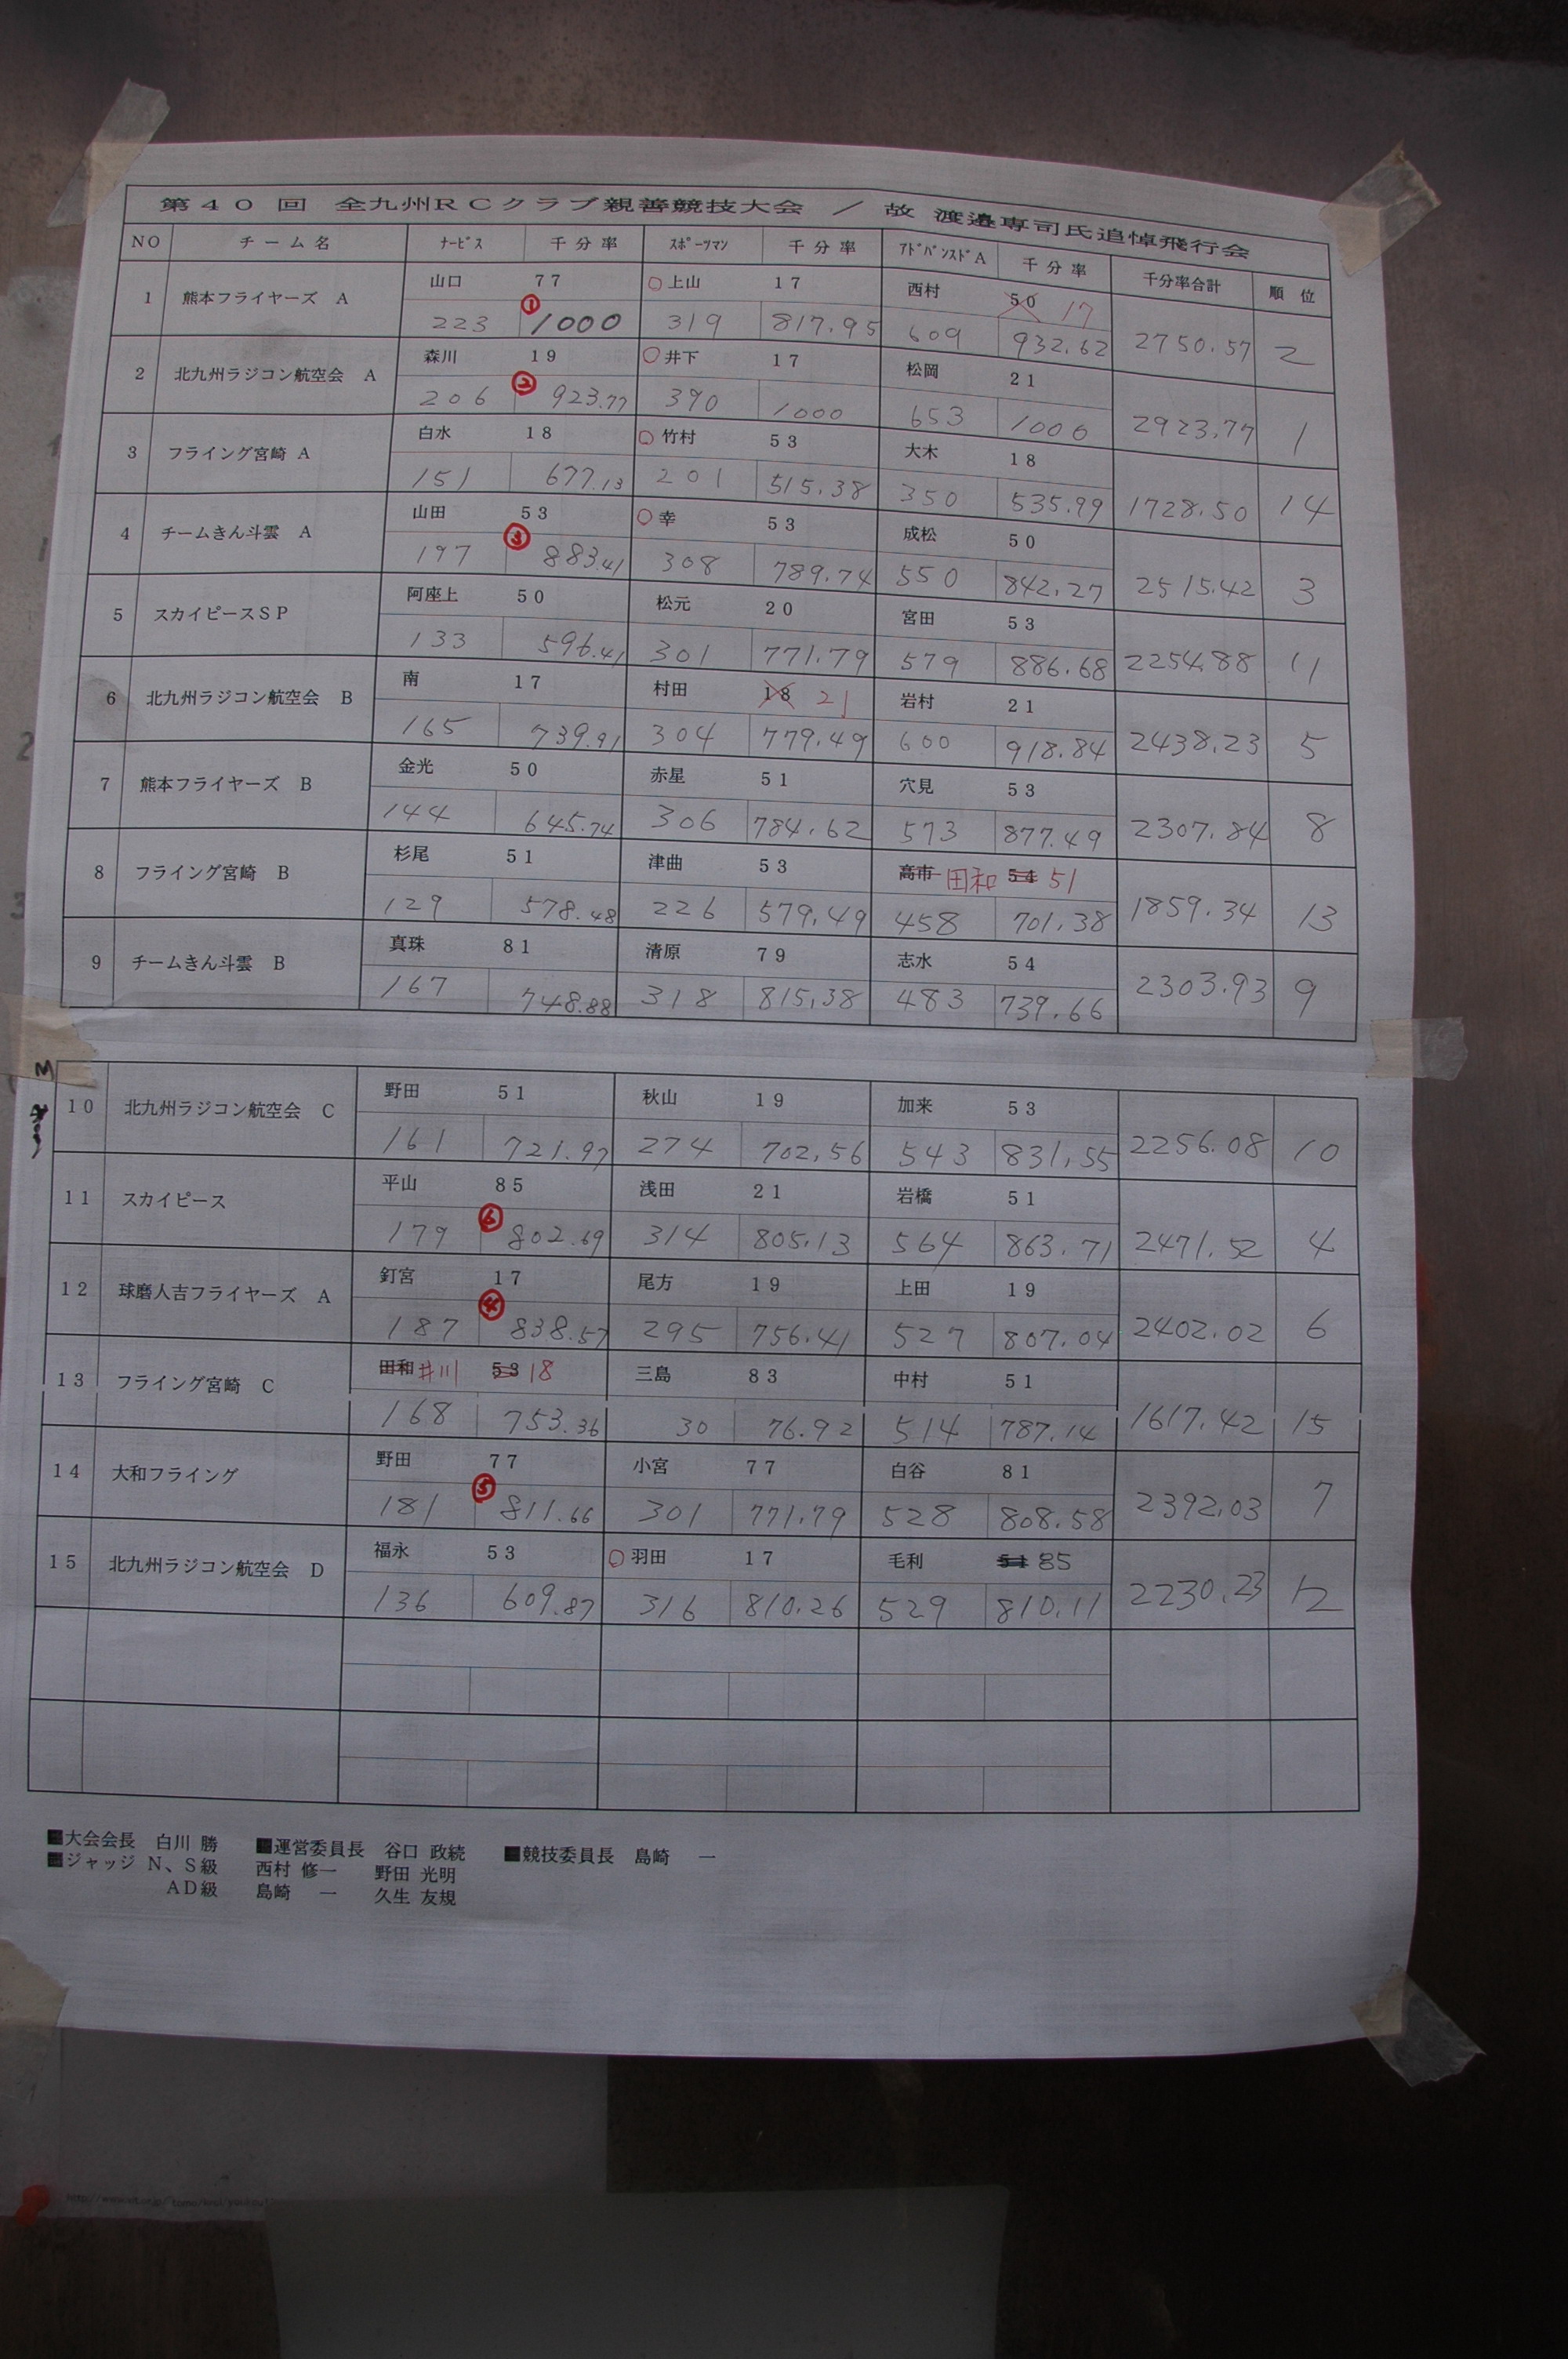 第40回 全九州RCクラブ親善競技大会 / 故 渡邉専司氏追悼飛行会
NO チーム名 ﾅｰﾋﾞｽ 千分率 ｽﾎﾟｰﾂﾏﾝ 千分率 ｱﾄﾞﾊﾞﾝｽﾄﾞA 千分率 千分率合計 順位
1 熊本フライヤーズ A 山口 77 ○上山 17 西村 50 17
223 ① 1000 319 817.95 609 932.62 2750.57 2
2 北九州ラジコン航空会 A 森川 19 ○井下 17 松岡 21
206 ② 923.77 390 1000 653 1000 2923.77 1
3 フライング宮崎 A 白水 18 ○竹村 53 大木 18
151 677.13 201 515.38 350 535.99 1728.50 14
4 チームきん斗雲 A 山田 53 ○幸 53 成松 50
197 ③ 883.41 308 789.74 550 842.27 2515.42 3
5 スカイピースSP 阿座上 50 松元 20 宮田 53
133 596.41 301 771.79 579 886.68 2254.88 11
6 北九州ラジコン航空会 B 南 17 村田 18 21 岩村 21
165 739.91 304 779.49 600 918.84 2438.23 5
7 熊本フライヤーズ B 金光 50 赤星 51 穴見 53
144 645.74 306 784.62 573 877.49 2307.84 8
8 フライング宮崎 B 杉尾 51 津曲 53 高市 田和 54 51
129 578.48 226 579.49 458 701.38 1859.34 13
9 チームきん斗雲 B 真珠 81 清原 79 志水 54
167 748.88 318 815.38 483 739.66 2303.93 9
10 北九州ラジコン航空会 C 野田 51 秋山 19 加来 53
161 721.97 274 702.56 543 831.55 2256.08 10
11 スカイピース 平山 85 浅田 21 岩橋 51
179 ⑥ 802.69 314 805.13 564 863.71 2471.52 4
12 球磨人吉フライヤーズ A 釘宮 17 尾方 19 上田 19
187 ④ 838.57 295 756.41 527 807.04 2402.02 6
13 フライング宮崎 C 田和 井川 53 18 三島 83 中村 51
168 753.36 30 76.92 514 787.14 1617.42 15
14 大和フライング 野田 77 小宮 77 白谷 81
181 ⑤ 811.66 301 771.79 528 808.58 2392.03 7
15 北九州ラジコン航空会 D 福永 53 ○羽田 17 毛利 51 85
136 609.87 316 810.26 529 810.11 2230.23 12
■大会会長 白川 勝 ■運営委員長 谷口 政続 ■競技委員長 島崎 一
■ジャッジ N、S級 西村 修一 野田 光明
AD級 島崎 一 久生 友規